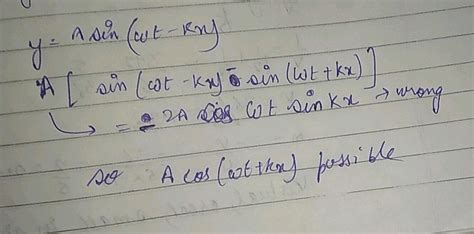 y = A sin (ωt - kx)
A [ sin (ωt - kx) - sin (ωt + kx) ]
= - 2A cos ωt sin kx → wrong
so A cos (ωt + kx) possible